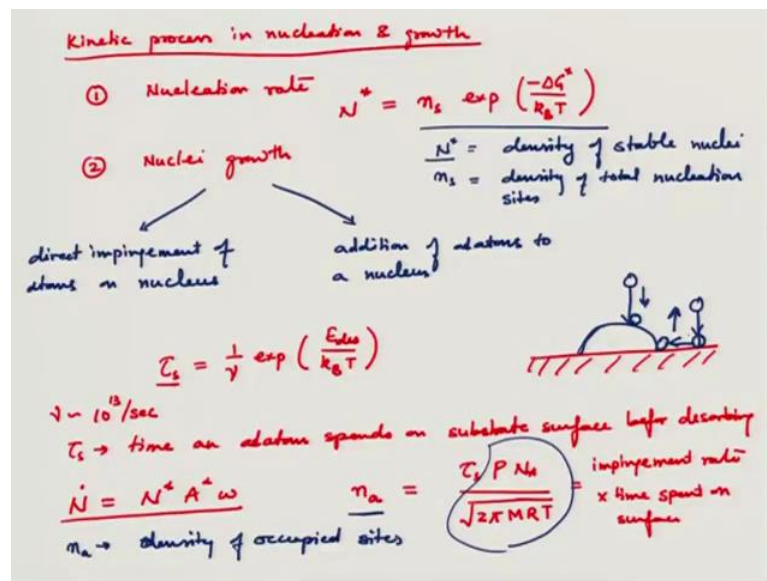 Kinetic process in nucleation & growth
① Nucleation rate N* = n_s exp (-ΔG*/k_BT)
N* = density of stable nuclei
n_s = density of total nucleation sites
② Nuclei growth
direct impingement of atoms on nucleus
addition of adatoms to a nucleus
τ_s = 1/ν exp (E_des/k_BT)
ν ~ 10^13/sec
τ_s → time an adatom spends on substrate surface befor desorbing
Ṅ = N* A* ω
n_a = τ_s P N_A/√2πMRT = impingement rate × time spent on surface
n_a → density of occupied sites